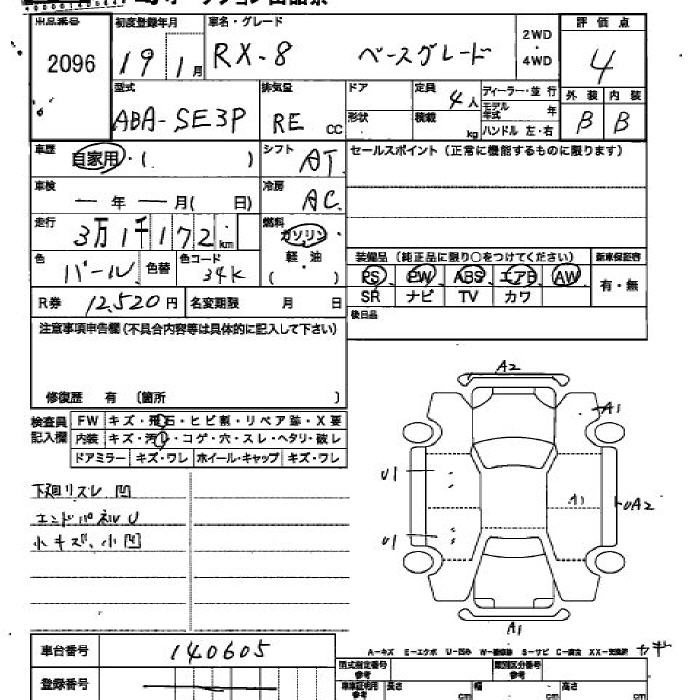 出品番号 初度登録年月 車名・グレード 2WD・4WD 評価点
2096 19 1月 RX-8 ベースグレード 4
型式 排気量 ドア 定員 4人 ディーラー・並行 外装 内装
ABA-SE3P RE CC 形状 積載 kg モデル年式 年 B B
ハンドル 左・右
車歴 自家用・( ) シフト AT セールスポイント(正常に機能するものに限ります)
車検 ー年ー月( 日) 冷房 AC
走行 3万1千172km 燃料 ガソリン
軽・油
( )
色 パール 色替 色コード 34K
装備品(純正品に限り○をつけてください) 新車保証書
PS PW ABS エアB AW 有・無
SR ナビ TV カワ
R券 12,520円 名変期限 月 日 後日品
注意事項申告欄(不具合内容等は具体的に記入して下さい)
修復歴 有 〔箇所 〕
検査員記入欄 FW キズ・飛石・ヒビ割・リペア跡・X要
内装 キズ・汚レ・コゲ・穴・スレ・ヘタリ・破レ
ドアミラー キズ・ワレ ホイール・キャップ キズ・ワレ
下廻リズレ 凹
エンドパネルU
小キズ、小凹
A2
A1
U1
A1
UA2
U1
A1
A-キズ E-エクボ U-凹み W-補修跡 S-サビ C-腐食 XX-交換済
車台番号 140605
型式指定番号 参考 類別区分番号 参考
登録番号 車車証明用 参考 長さ cm 幅 cm 高さ cm